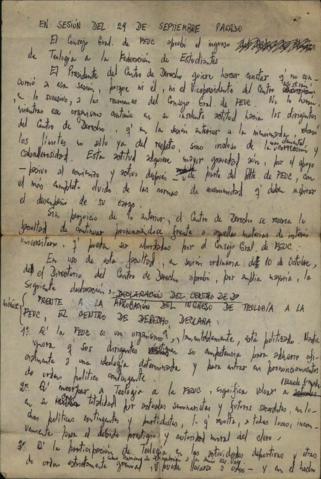 EN SESIÓN DEL 29 DE SEPTIEMBRE PASADO
El Consejo Gral. de FEUC aprobó el ingreso
de Teología a la Federación de Estudiantes
El Presidente del Centro de Derecho quiere hacer constar q' no con-
currió a esa sesión, porque ni él, ni el Vicepresidente del Centro
en lo sucesivo, a las reuniones del Consejo Gral de FEUC. No lo harán
mientras ese organismo mantenga su insolente actitud hacia los dirigentes
del Centro de Derecho, q' en la sesión anterior a la mencionada,
los límites no sólo ya del respeto, sino incluso de
caballerosidad. Esta actitud adquiere mayor gravedad aún, por el apoyo
-pasivo al comienzo y activo después por parte del pdte de FEUC, con
el más completo olvido de las normas de ecuanimidad q' deben inspirar
el desempeño de su cargo.
Sin perjuicio de lo anterior, el Centro de Derecho se reserva la
facultad de continuar pronunciándose frente a aquellas materias de interés
universitario, q' puedan ser abordadas por el Consejo Gral de FEUC.
En uso de esta facultad, en sesión ordinaria, del 10 de Octubre,
el Directorio del Centro de Derecho aprobó, por amplia mayoría, la
siguiente declaración: DECLARACIÓN DEL CENTRO DE Dº
FRENTE A LA APROBACIÓN DEL INGRESO DE TEOLOGÍA A LA
FEUC, EL CENTRO DE DERECHO DECLARA:
1º. Q' la FEUC es un organismo, lamentablemente, está politizado. Nadie
ignora q' sus dirigentes su competencia para adoctrinar
a una ideología determinada y para entrar en pronunciamientos
de orden político contingente.
2º. Q' incorporar a Teología a la FEUC, significa volcar a
en su totalidad por actuales seminaristas y futuros sacerdotes, en lu-
chas políticas contingentes y partidistas, lo q' resulta, a todas luces, inconve-
niente para el debido prestigio y autoridad moral del clero.
3º. Q' la participación de Teología en las actividades deportivas y otras
de orden estrictamente gremial, puede llevarse a cabo y en el hecho